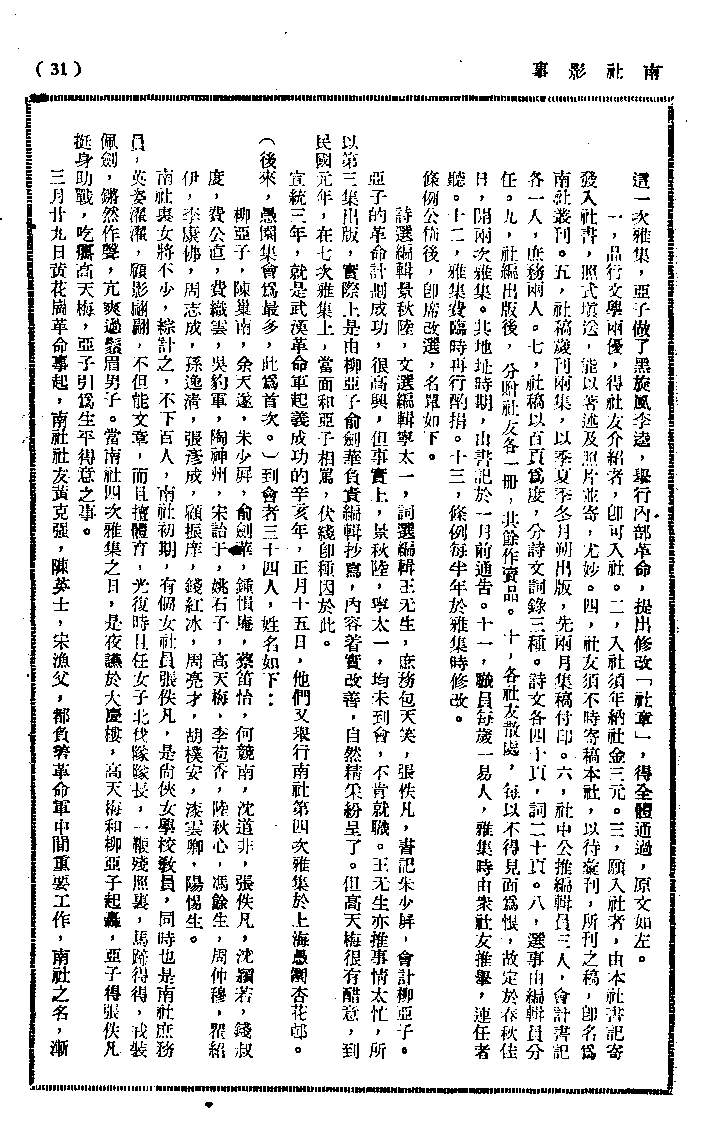 南社影事
(31)
這一次雅集，亞子做了黑旋風李逵，舉行內部革命，提出修改「社章」，得全體通過，原文如左。
一，品行文學兩優，得社友介紹者，卽可入社。二，入社須年納社金三元。三，願入社者，由本社書記寄
發入社書，照式塡送，能以著述及照片並寄，尤妙。四，社友須不時寄稿本社，以待彙刊，所刊之稿，卽名爲
南社叢刊。五，社稿歲刊兩集，以季夏季冬月朔出版，先兩月集稿付印。六，社中公推編輯員三人，會計書記
各一人，庶務兩人。七，社稿以百頁爲度，分詩文詞錄三種。詩文各四十頁，詞二十頁。八，選事由編輯員分
任。九，社編出版後，分貽社友各一冊，其餘作賣品。十，各社友散處，每以不得見面爲恨，故定於春秋佳
日，開兩次雅集。其地址時期，由書記於一月前通告。十一，職員每歲一易人，雅集時由衆社友推舉，連任者
聽。十二，雅集費臨時再行酌捐。十三，條例每半年於雅集時修改。
條例公佈後，卽席改選，名單如下。
詩選編輯景秋陸，文選編輯寧太一，詞選編輯王无生，庶務包天笑，張佚凡，書記朱少屏，會計柳亞子。
亞子的革命計劃成功，很高興，但事實上，景秋陸，寧太一，均未到會，不肯就職。王无生亦推事情太忙，所
以第三集出版，實際上是由柳亞子俞劍華負責編輯抄寫，內容着實改善，自然精采紛呈了。但高天梅很有酷意，到
民國元年，在七次雅集上，當面和亞子相駡，伏綫卽種因於此。
宣統三年，就是武漢革命軍起義成功的辛亥年，正月十五日，他們又舉行南社第四次雅集於上海愚園杏花邨。
(後來，愚園集會爲最多，此爲首次。)到會者三十四人，姓名如下：
柳亞子，陳巢南，余天遂，朱少屏，俞劍華，鍾愼庵，蔡笛怡，何競南，沈道非，張佚凡，沈礪若，錢叔
度，費公直，費織雲，吳豹軍，陶神州，宋詒于，姚石子，高天梅，李苞香，陸秋心，馮餘生，周仲穆，瞿紹
伊，李康佛，周志成，孫逸淸，張彥成，顧振庠，錢紅冰，周亮才，胡樸安，漆雲卿，陽惕生。
南社裏女將不少，綜計之，不下百人，南社初期，有個女社員張佚凡，是尙俠女學校敎員，同時也是南社庶務
員，英姿濯濯，顧影翩翩，不但能文章，而且擅體育，光復時且任女子北伐隊隊長，一鞭殘照裏，馬跡得得，戎裝
佩劍，鏘然作聲，亢爽過鬚眉男子。當南社四次雅集之日，是夜讌於大慶樓，高天梅和柳亞子起轟，亞子得張佚凡
挺身助戰，吃癟高天梅，亞子引爲生平得意之事。
三月廿九日黃花崗革命事起，南社社友黃克強，陳英士，宋漁父，都負着革命軍中間重要工作，南社之名，漸